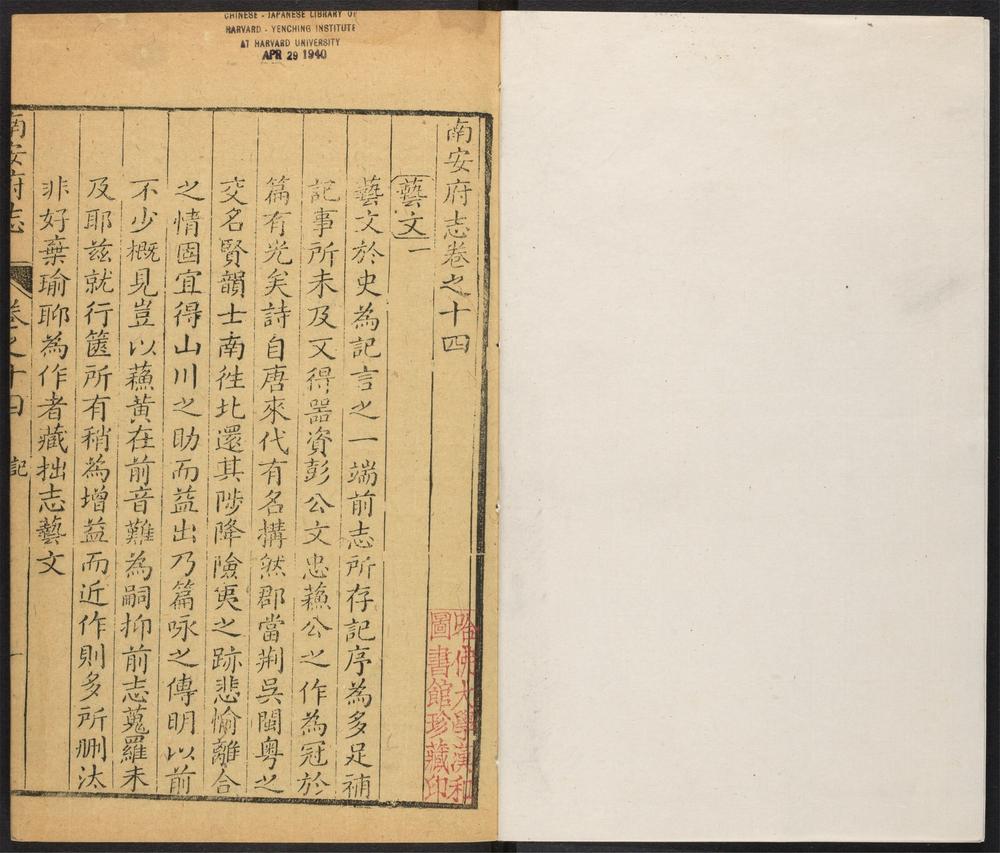 CHINESE - JAPANESE LIBRARY OF
HARVARD - YENCHING INSTITUTE
AT HARVARD UNIVERSITY
APR 29 1940
南安府志卷之十四
藝文一
藝文於史為記言之一端前志所存記序為多足補
記事所未及文得噐資彭公文忠蘓公之作為冠於
篇有光矣詩自唐來代有名搆然郡當荆吳閩粤之
交名賢韻士南徃北還其陟降險夷之跡悲愉離合
之情固宜得山川之助而益出乃篇咏之傳明以前
不少概見豈以蘓黃在前音難為嗣抑前志蒐羅未
及耶兹就行篋所有稍為增益而近作則多所刪汰
非好棄瑜聊為作者藏拙志藝文
南安府志
卷之十四
記
一
哈佛大學漢和
圖書館珍藏印